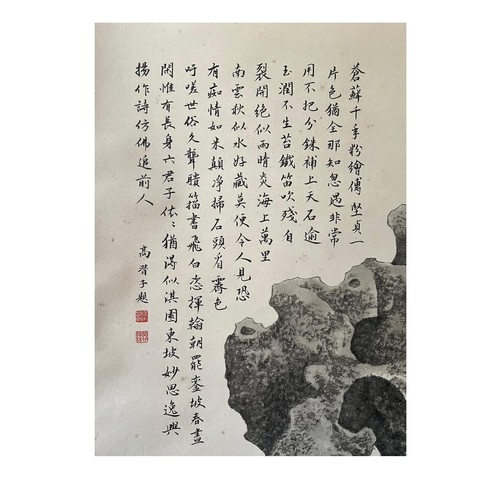 蒼蘚千年粉繪傅堅貞一
片色猶全那知忽遇非常
用不把分銖補上天石逾
玉潤不生苔鐵笛吹殘自
裂開絕似雨晴炎海上萬里
南雲秋似水好藏莫使令人見恐
有癡情如米顛淨掃石頭看霽色
吁嗟世俗久聾聵籀書飛白恣揮翰朝罷鑾坡春晝
閒惟有長身六君子依〻猶得似淇園東坡妙思逸興
揚作詩仿佛追前人
高習子題